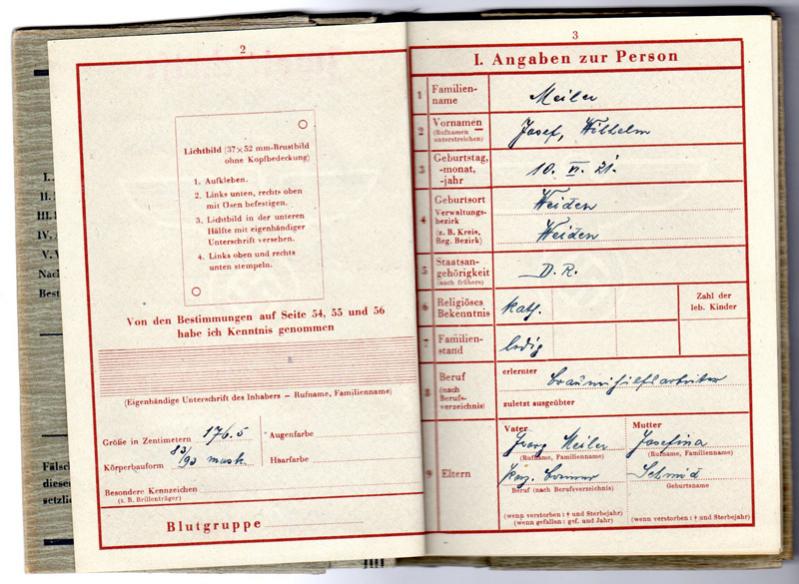 I.
II.
III.
IV.
V.
Nach
Best
Fälsc
diese
setzlic
2
Lichtbild (37×52 mm-Brustbild
ohne Kopfbedeckung)
1. Aufkleben.
2. Links unten, rechts oben
mit Ösen befestigen.
3. Lichtbild in der unteren
Hälfte mit eigenhändiger
Unterschrift versehen.
4. Links oben und rechts
unten stempeln.
Von den Bestimmungen auf Seite 54, 55 und 56
habe ich Kenntnis genommen
(Eigenhändige Unterschrift des Inhabers – Rufname, Familienname)
Größe in Zentimetern 176.5
Augenfarbe
Körperbauform 83/93 musk.
Haarfarbe
Besondere Kennzeichen
(z. B. Brillenträger)
Blutgruppe
3
I. Angaben zur Person
1 Familien-
name
Meiler
2 Vornamen
(Rufnamen
unterstreichen)
Josef, Wilhelm
3 Geburtstag,
-monat,
-jahr
10. VI. 21.
4 Geburtsort
Verwaltungs-
bezirk
(z. B. Kreis,
Reg. Bezirk)
Weiden
Weiden
5 Staatsan-
gehörigkeit
(auch frühere)
D.R.
6 Religiöses
Bekenntnis
kath.
Zahl der
leb. Kinder
7 Familien-
stand
ledig
8 Beruf
(nach
Berufs-
verzeichnis)
erlernter
zuletzt ausgeübter
9 Eltern
Vater
Georg Meiler
(Rufname, Familienname)
Beruf (nach Berufsverzeichnis)
(wenn verstorben: † und Sterbejahr)
(wenn gefallen: gef. und Jahr)
Mutter
Josefina
(Rufname, Familienname)
Schmid
Geburtsname
(wenn verstorben: † und Sterbejahr)